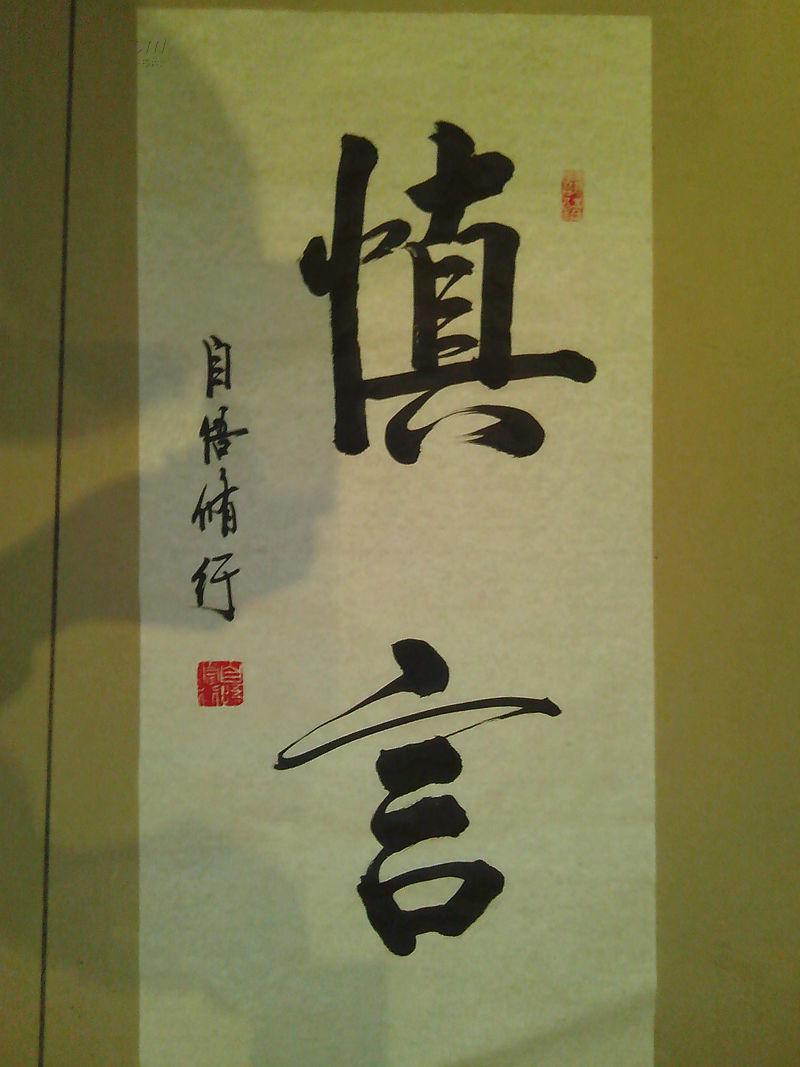 慎言
自悟脩行